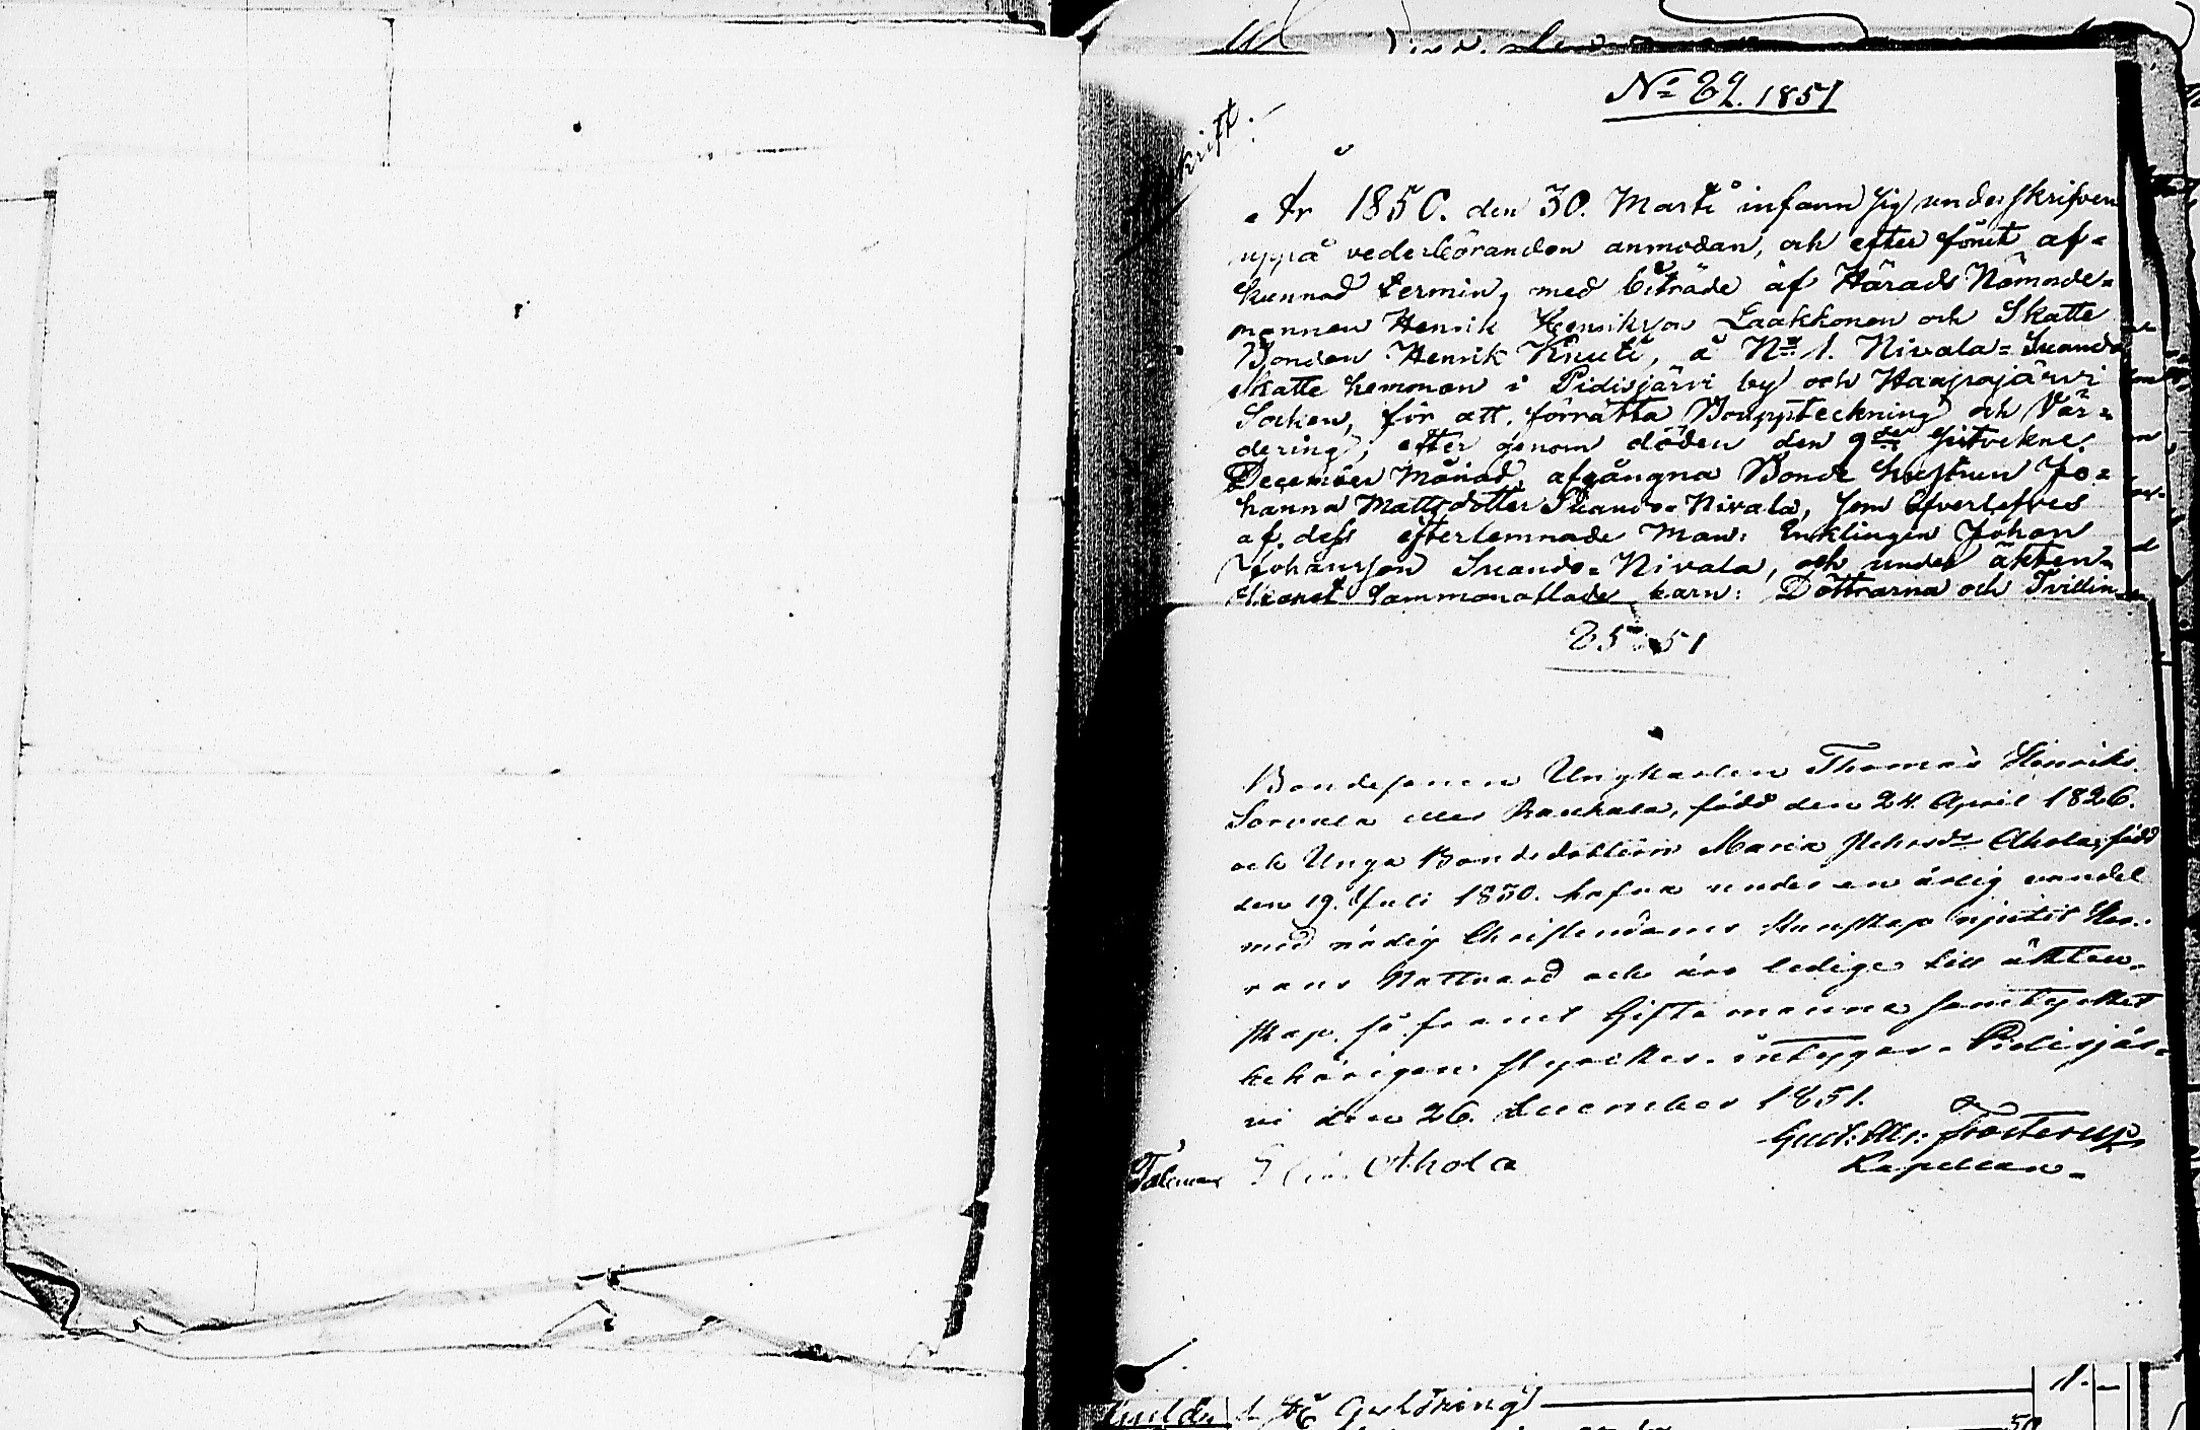 No 29. 1851
År 1850. den 30. Marti infann sig underskrifven
uppå vederböranden anmodan, och efter förut af=
kunnad termin, med biträde af Härads Nämnde=
mannen Henrik Henriksson Laakkonen och Skatte
Bonden Henrik Knuti, å No 1. Nivala=Suando
skatte hemman i Pidisjärvi by och Haapajärvi
Socken, för att förrätta Bouppteckning och Vär=
dering, efter genom döden den 9de sistvekne
December Månad, afgångna Bonde hustrun Jo=
hanna Mattsdotter Suando=Nivala, som öfverlefves
af dess efterlemnade Man: Enklingen Johan
Johansson Suando=Nivala, och under äkten=
skapet sammanaflade barn: Döttrarna och Tvillin=
25 51
Bondesonen Ungkarlen Thomas Henriks.
Sorvala eller Raukala, född den 24. April 1826.
och Unga Bondedottern Maria Ahola, född
den 19. Juli 1830. hafva under en ärlig vandel
med nödig Christendoms Kunskap njutit Her.
rans Nattvard och äro ledige till äkten=
skap, så framt Giftomanna samtycket
behörigen styrckes. intygar. Pidisjär=
vi den 26. December 1851.
Gust. Frosterus
Kapellan.
Talman Ahola